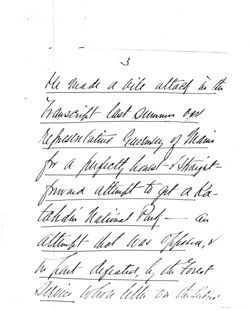 3
He made a vile attack in the
Transcript last summer on
representative Guernsey of Maine
for a perfectly honest & straight-
forward attempt to get a Ka-
tahdin National Park — an
attempt that was opposed, &
in fact defeated, by the Forest
Service whose letter on the